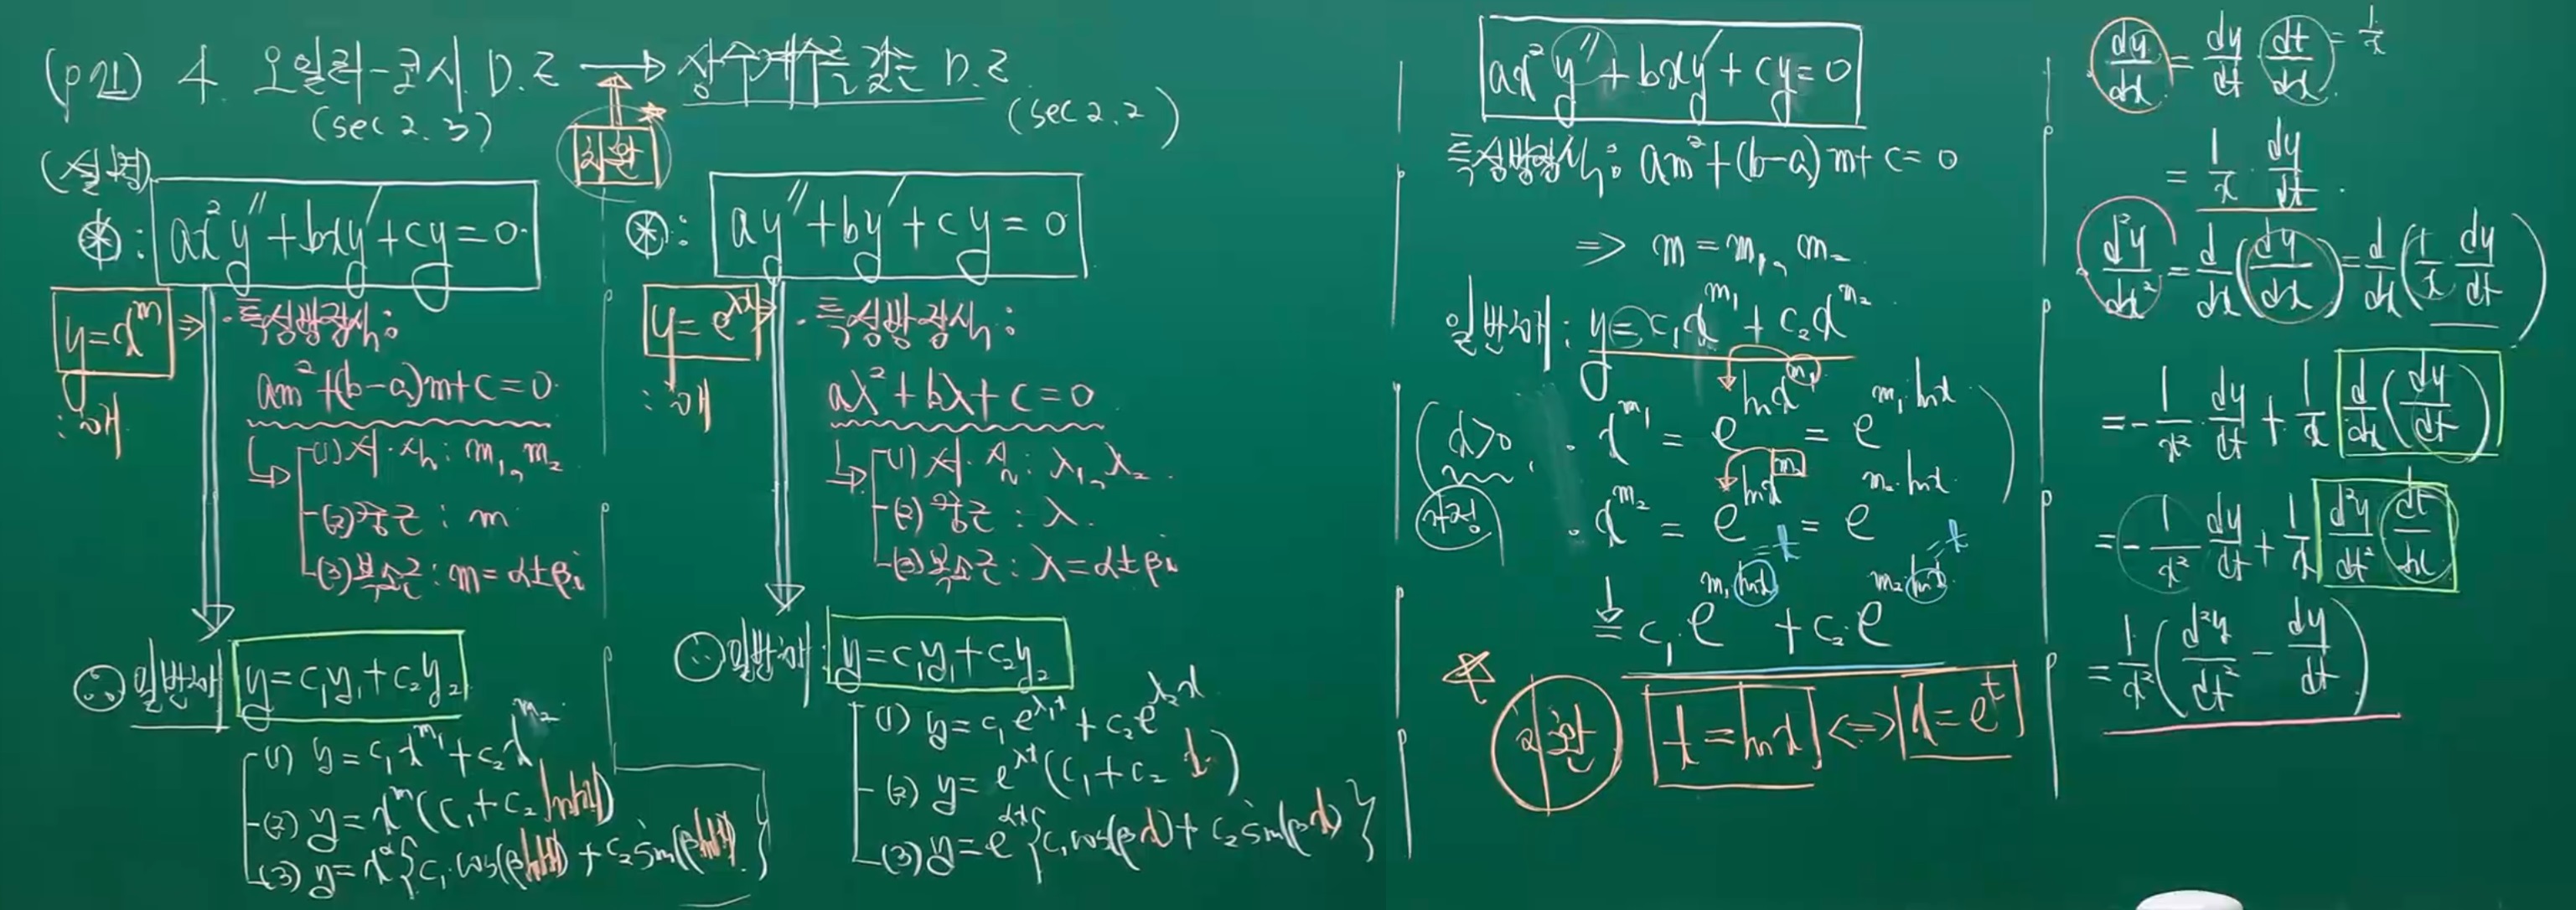 (p21) 4. 오일러-코시 D.E → 상수계수를 갖는 D.E
(sec 2.3) (sec 2.2)
치환
(설정)
⊛: ax²y″+bxy′+cy=0
y=x^m ⇒ · 특성방정식:
: 해
am²+(b-a)m+c=0
(1) 서.실: m₁, m₂
(2) 중근: m
(3) 복소근: m=α±βi
∴ 일반해 y=c₁y₁+c₂y₂
(1) y=c₁x^m₁+c₂x^m₂
(2) y=x^m(c₁+c₂ln|x|)
(3) y=x^α{c₁·cos(βln|x|)+c₂sin(βln|x|)}
⊛: ay″+by′+cy=0
y=e^λx ⇒ · 특성방정식:
: 해
aλ²+bλ+c=0
(1) 서.실: λ₁, λ₂
(2) 중근: λ.
(3) 복소근: λ=α±βi
∴ 일반해: y=c₁y₁+c₂y₂
(1) y=c₁e^λ₁x+c₂e^λ₂x
(2) y=e^λx(c₁+c₂x)
(3) y=e^αx{c₁cos(βx)+c₂sin(βx)}
ax²y″+bxy′+cy=0
특성방정식: am²+(b-a)m+c=0
⇒ m=m₁, m₂
일반해: y=c₁x^m₁+c₂x^m₂
(x>0 · x^m₁ = e^lnx^m₁ = e^m₁·lnx
가정. · x^m₂ = e^lnx^m₂ = e^m₂·lnx)
=t =t
= c₁·e^m₁lnx + c₂·e^m₂lnx
☆ 치환 t=lnx ⇔ x=e^t
dy/dx = dy/dt dt/dx = 1/x
= 1/x · dy/dt.
d²y/dx² = d/dx(dy/dx) = d/dx(1/x · dy/dt)
= -1/x² · dy/dt + 1/x d/dx(dy/dt)
= -1/x² · dy/dt + 1/x d²y/dt² dt/dx
= 1/x²(d²y/dt² - dy/dt)